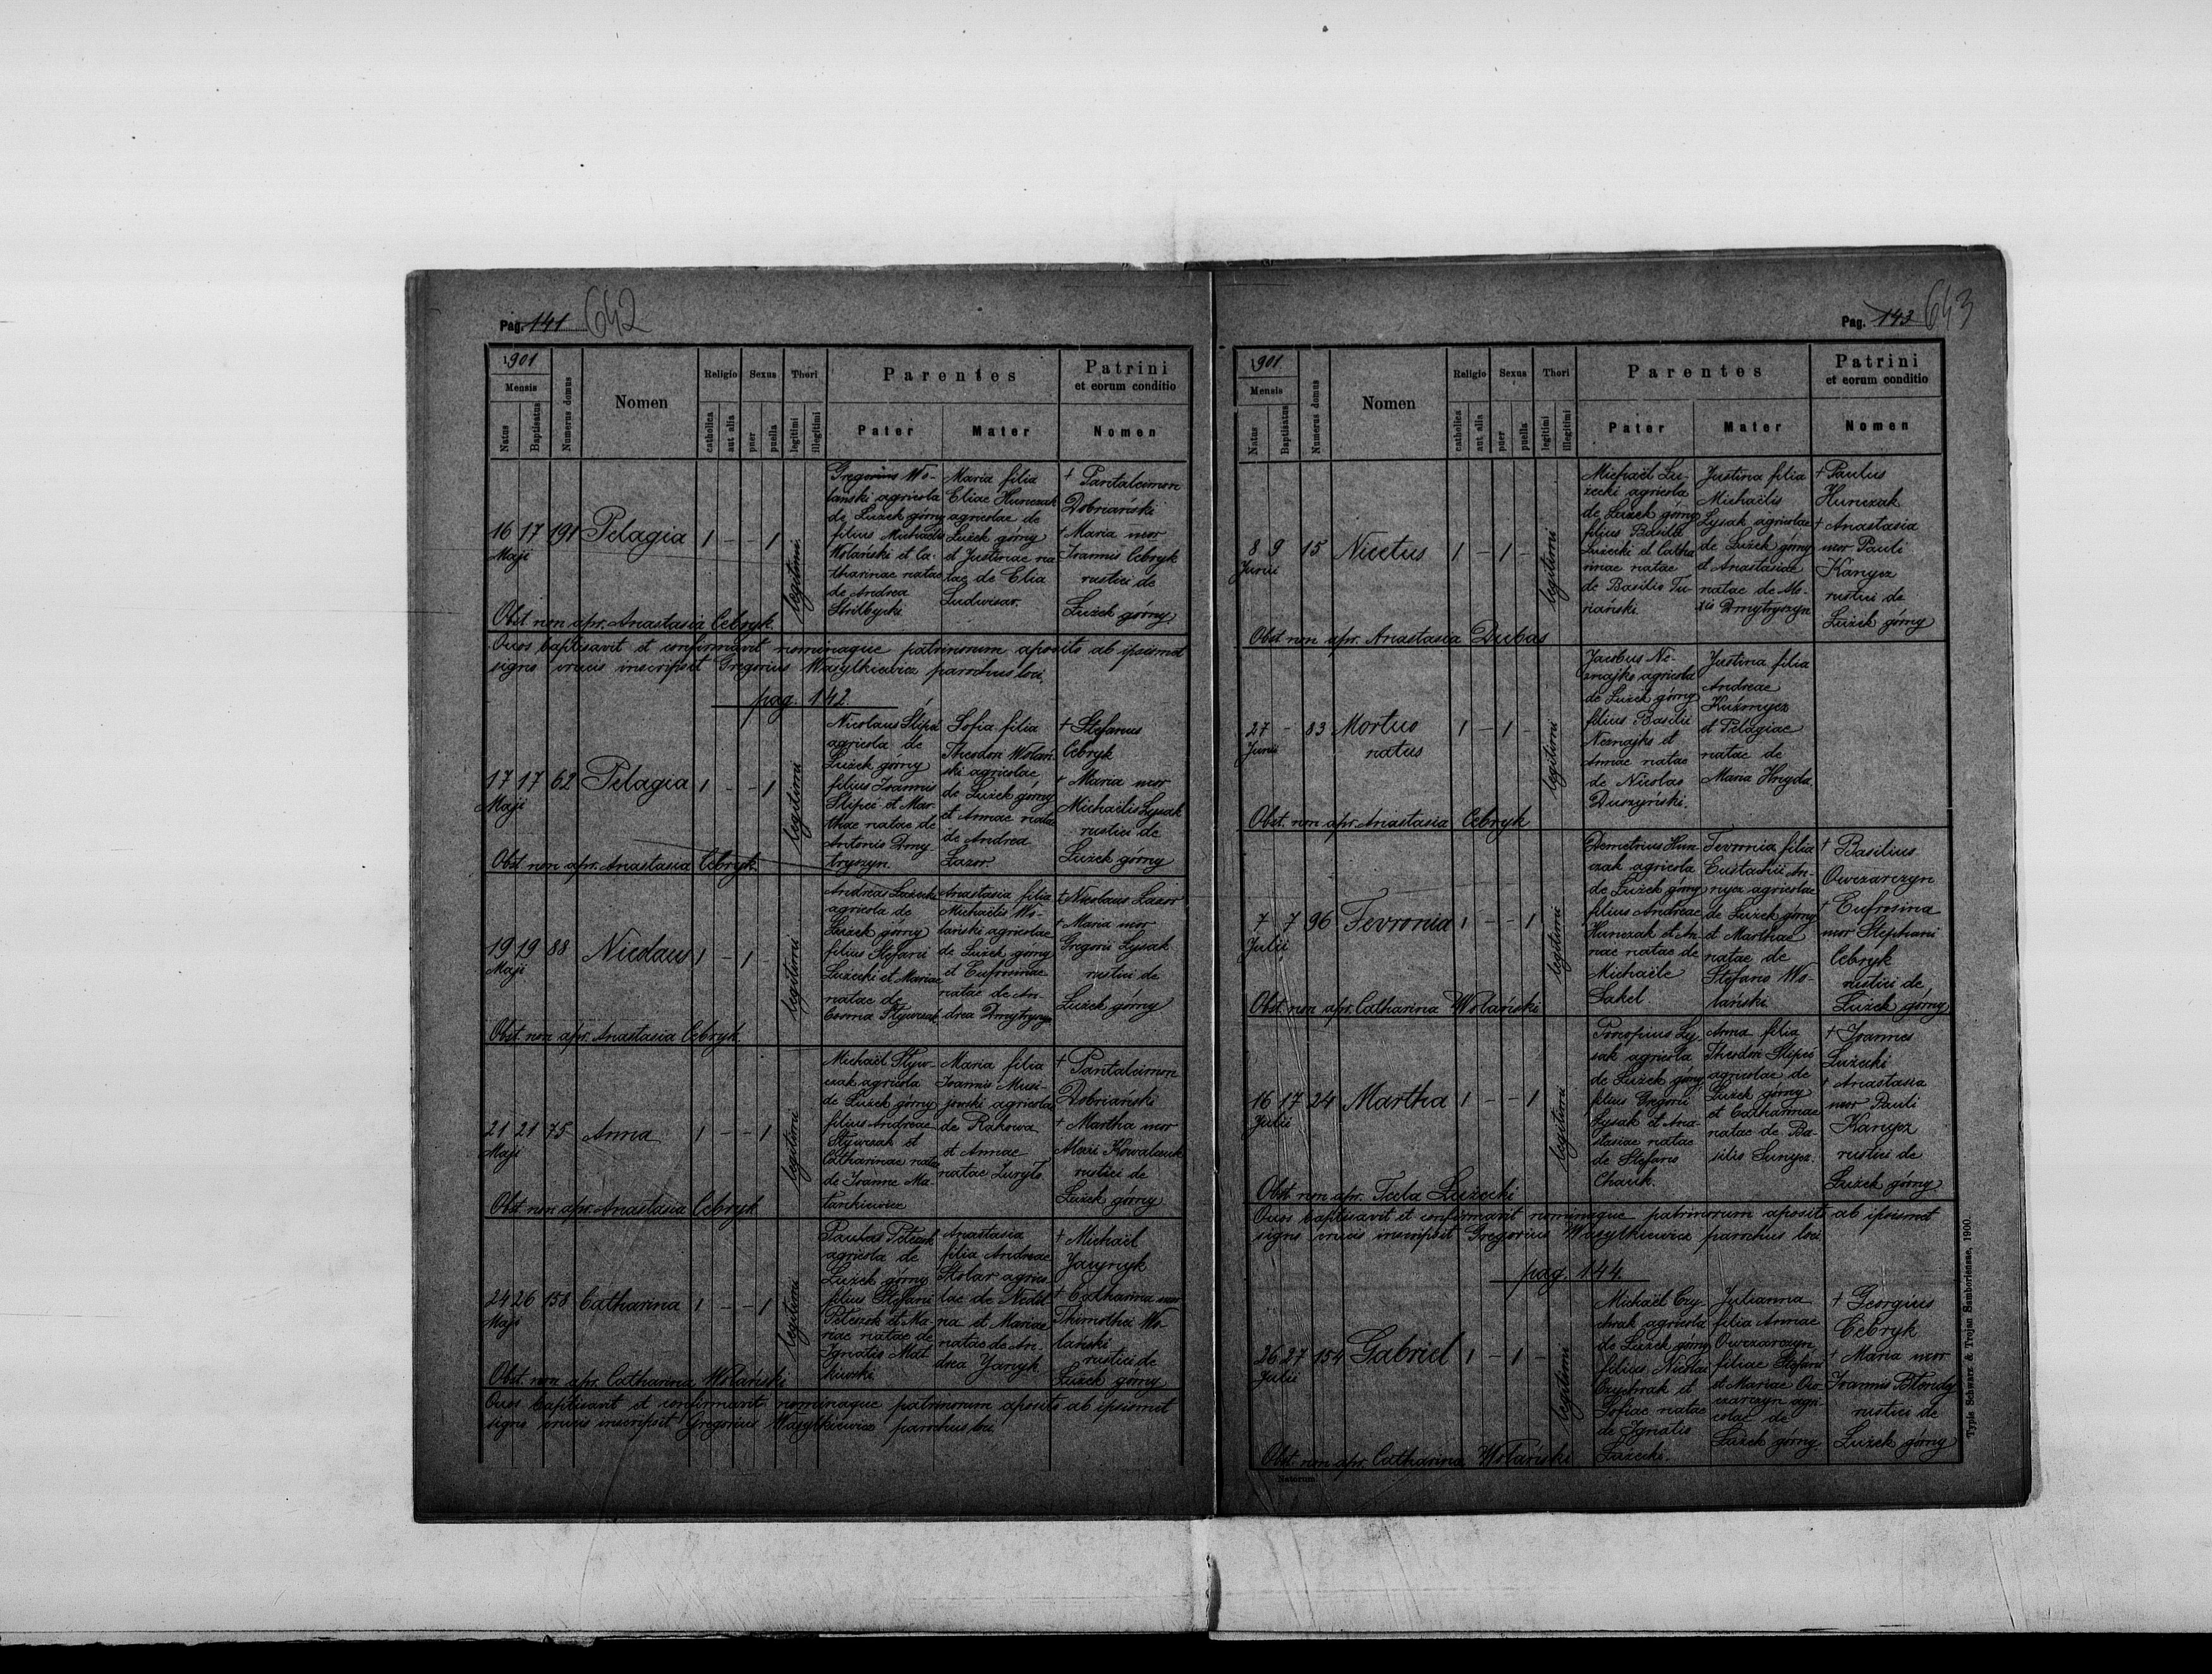 Pag. 141 642
1901
Mensis
Natus
Baptisatus
Numerus domus
Nomen
Religio
catholica
aut alia
Sexus
puer
puella
Thori
legitimi
illegitimi
Parentes
Pater
Mater
Patrini
et eorum conditio
Nomen
16 17 191 Pelagia 1 - - 1 legitimi
Maji
Gregorius Wo-
lański agricola
de Łużek górny
filius Michaëlis
Wolański et Ca-
tharinae natae
de Andrea
Strilbycki
Maria filia
Eliae Hunczak
agricolae de
Łużek górny
et Justinae na
tae de Elia
Ludwisar.
† Pantaleimon
Dobriański
† Maria uxor
Joannis Cebryk
rustici de
Łużek górny
Obst. non apr. Anastasia Cebryk.
Quos baptisavit et confirmavit nominaque patrinorum aposito ab ipsismet
signo crucis inscripsit Gregorius Wasylkiewicz parochus loci.
pag. 142
17 17 62 Pelagia 1 - - 1 legitimi
Maji
Nicolaus Slipeć
agricola de
Łużek górny
filius Joannis
Slipeć et Mar-
thae natae de
Antonio Dmy
tryszyn.
Sofia filia
Theodori Wolań
ski agricolae
de Łużek górny
et Annae natae
de Andrea
Łazor.
† Stefanus
Cebryk
† Maria uxor
Michaëlis Lysak
rustici de
Łużek górny
Obst. non apr. Anastasia Cebryk.
19 19 88 Nicolaus 1 - 1 - legitimi
Maji
Andreas Łużecki
agricola de
Łużek górny
filius Stefani
Łużecki et Mariae
natae de
Cosma Stywczak
Anastasia filia
Michaëlis Wo-
lański agricolae
de Łużek górny
et Eufrosinae
natae de An-
drea Dmytryszyn
† Nicolaus Łazor
† Maria uxor
Gregorii Lysak
rustici de
Łużek górny
Obst. non apr. Anastasia Cebryk.
21 21 75 Anna 1 - - 1 legitimi
Maji
Michaël Styw-
czak agricola
de Łużek górny
filius Andreae
Stywczak et
Catharinae natae
de Joanne Ma-
tankiewicz
Maria filia
Joannis Musi-
jowski agricolae
de Rakowa
et Annae
natae Żuryło
† Pantaleimon
Dobriański
† Martha uxor
Alexii Kowalczuk
rustici de
Łużek górny
Obst. non apr. Anastasia Cebryk
24 26 158 Catharina 1 - - 1 legitimi
Maji
Paulus Peleszak
agricola de
Łużek górny
filius Stefani
Peleszak et Ma-
riae natae de
Ignatio Mat
kiwski
Anastasia
filia Andreae
Stolar agrico-
lae de Nedil-
na et Mariae
natae de An-
drea Janyk
† Michaël
† Catharina uxor
Thimothei Wo-
lański
rustici de
Łużek górny
Obst. non apr. Catharina Wolański
Quos baptisavit et confirmavit nominaque patrinorum aposito ab ipsismet
signo crucis inscripsit Gregorius Wasylkiewicz parochus loci.
Pag. 143 643
1901
Mensis
Natus
Baptisatus
Numerus domus
Nomen
Religio
catholica
aut alia
Sexus
puer
puella
Thori
legitimi
illegitimi
Parentes
Pater
Mater
Patrini
et eorum conditio
Nomen
8 9 15 Nicetus 1 - 1 - legitimi
Junii
Michaël Łu-
żecki agricola
de Łużek górny
filius Basilii
Łużecki et Catha
rinae natae
de Basilio Tu-
riański.
Justina filia
Michaëlis
Lysak agricolae
de Łużek górny
et Anastasiae
natae de Ale-
xio Dmytryszyn
† Paulus
Hunczak
† Anastasia
uxor Pauli
Kanycz
rustici de
Łużek górny
Obst. non apr. Anastasia Dubas
27 - 83 Mortuo 1 - 1 - legitimi
Junii natus
Jacobus Ne-
znajko agricola
de Łużek górny
filius Basilii
Neznajko et
Annae natae
de Nicolao
Duszyński.
Justina filia
Andreae
Kuźmycz
et Pelagiae
natae de
Maria Hryda.
Obst. non apr. Anastasia Cebryk
7 7 96 Fevronia 1 - - 1 legitimi
Julii
Demetrius Hun-
czak agricola
de Łużek górny
filius Andreae
Hunczak et An-
nae natae de
Michaële
Sakel.
Fevronia filia
Eustachii An-
nycz agricolae
de Łużek górny
et Marthae
natae de
Stefano Wo-
lański.
† Basilius
Owczarczyn
† Eufrosina
uxor Stephani
Cebryk
rustici de
Łużek górny
Obst. non apr. Catharina Wolański
16 17 24 Martha 1 - - 1 legitimi
Julii
Procopius Ly-
sak agricola
de Łużek górny
filius Gregorii
Lysak et Ana-
stasiae natae
de Stefano
Chauk.
Anna filia
Theodori Slipeć
agricolae de
Łużek górny
et Catharinae
natae de Ba-
silio Sunycz.
† Joannes
Łużecki
† Anastasia
uxor Pauli
Kanycz
rustici de
Łużek górny
Obst. non apr. Tecla Łużecki
Quos baptisavit et confirmavit nominaque patrinorum aposito ab ipsismet
signo crucis inscripsit Gregorius Wasylkiewicz parochus loci
pag. 144.
26 27 154 Gabriel 1 - 1 - legitimi
Julii
Michaël Czy-
chrak agricola
de Łużek górny
filius Nicolai
Czychrak et
Sofiae natae
de Ignatio
Łużecki.
Julianna
filia Annae
Owczarczyn
filiae Stefani
et Mariae Ow-
czarczyn agri-
colae de
Łużek górny
† Georgius
Cebryk
† Maria uxor
Joannis Blondy
rustici de
Łużek górny
Obst. non apr. Catharina Wolański
Natorum
Typis Schwarz & Trojan Samboriense, 1900.